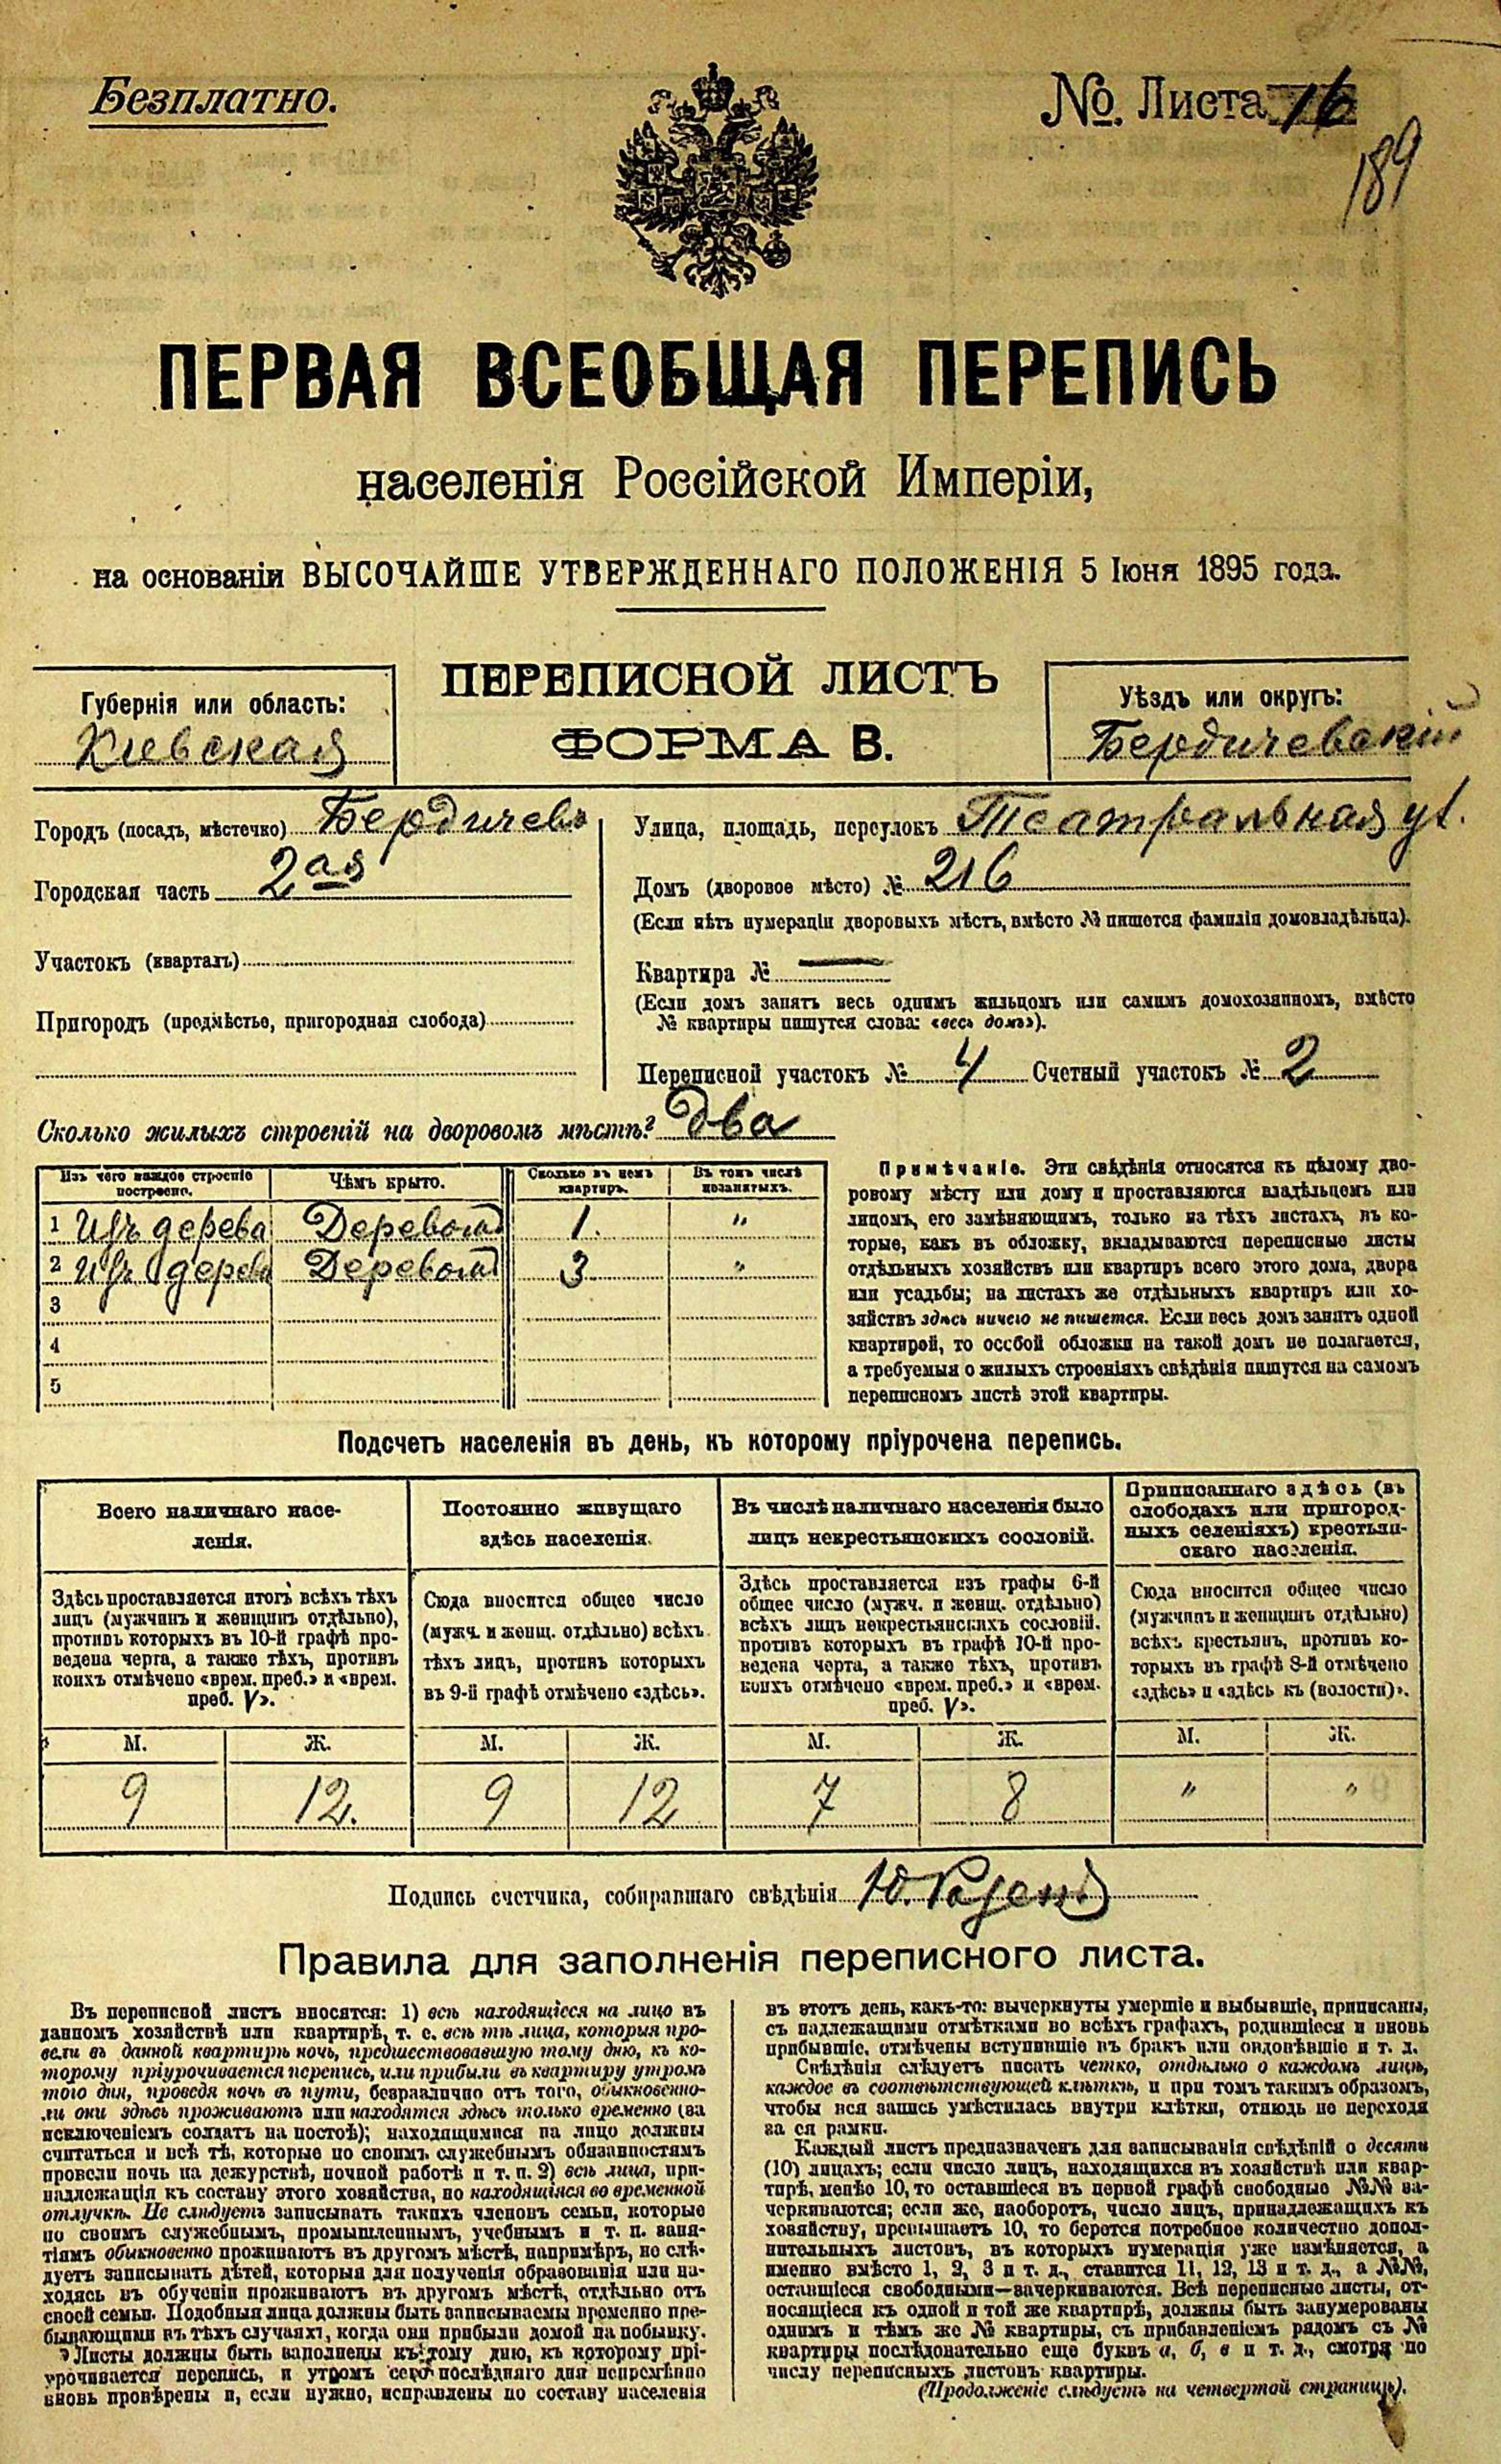 Безплатно.
№. Листа 16
189
ПЕРВАЯ ВСЕОБЩАЯ ПЕРЕПИСЬ
населенія Россійской Имперіи,
на основаніи ВЫСОЧАЙШЕ УТВЕРЖДЕННАГО ПОЛОЖЕНІЯ 5 Іюня 1895 года.
ПЕРЕПИСНОЙ ЛИСТЪ
ФОРМА В.
Губернія или область:
Кіевская
Уѣздъ или округъ:
Бердичевскій
Городъ (посадъ, мѣстечко) Бердичевъ
Городская часть 2ая
Участокъ (кварталъ)
Пригородъ (предмѣстье, пригородная слобода)
Улица, площадь, переулокъ Театральная ул.
Домъ (дворовое мѣсто) № 216
(Если нѣтъ нумераціи дворовыхъ мѣстъ, вмѣсто № пишется фамилія домовладѣльца).
Квартира № —
(Если домъ занятъ весь однимъ жильцомъ или самимъ домохозяиномъ, вмѣсто
№ квартиры пишутся слова: «весь домъ»).
Переписной участокъ № 4 Счетный участокъ № 2
Сколько жилыхъ строеній на дворовомъ мѣстѣ? два
Изъ чего каждое строеніе построено. Чѣмъ крыто. Сколько въ немъ квартиръ. Въ томъ числѣ незанятыхъ.
1 Изъ дерева Деревомъ 1. "
2 Изъ дерева Деревомъ 3 "
3
4
5
Примѣчаніе. Эти свѣдѣнія относятся къ цѣлому дво-
ровому мѣсту или дому и проставляются владѣльцемъ или
лицомъ, его замѣняющимъ, только на тѣхъ листахъ, въ ко-
торые, какъ въ обложку, вкладываются переписные листы
отдѣльныхъ хозяйствъ или квартиръ всего этого дома, двора
или усадьбы; на листахъ же отдѣльныхъ квартиръ или хо-
зяйствъ здѣсь ничего не пишется. Если весь домъ занятъ одной
квартирой, то особой обложки на такой домъ не полагается,
а требуемыя о жилыхъ строеніяхъ свѣдѣнія пишутся на самомъ
переписномъ листѣ этой квартиры.
Подсчетъ населенія въ день, къ которому пріурочена перепись.
Всего наличнаго насе-
ленія.
Здѣсь проставляется итогъ всѣхъ тѣхъ
лицъ (мужчинъ и женщинъ отдѣльно),
противъ которыхъ въ 10-й графѣ про-
ведена черта, а также тѣхъ, противъ
коихъ отмѣчено «врем. преб.» и «врем.
преб. V».
Постоянно живущаго
здѣсь населенія.
Сюда вносится общее число
(мужч. и женщ. отдѣльно) всѣхъ
тѣхъ лицъ, противъ которыхъ
въ 9-й графѣ отмѣчено «здѣсь».
Въ числѣ наличнаго населенія было
лицъ некрестьянскихъ сословій.
Здѣсь проставляется изъ графы 6-й
общее число (мужч. и женщ. отдѣльно)
всѣхъ лицъ некрестьянскихъ сословій,
противъ которыхъ въ графѣ 10-й про-
ведена черта, а также тѣхъ, противъ
коихъ отмѣчено «врем. преб.» и «врем.
преб. V».
Приписаннаго здѣсь (въ
слободахъ или пригород-
ныхъ селеніяхъ) крестьян-
скаго населенія.
Сюда вносится общее число
(мужчинъ и женщинъ отдѣльно)
всѣхъ крестьянъ, противъ ко-
торыхъ въ графѣ 8-й отмѣчено
«здѣсь» и «здѣсь къ (волости)».
М. Ж. М. Ж. М. Ж. М. Ж.
9 12. 9 12 7 8 " "
Подпись счетчика, собиравшаго свѣдѣнія
Правила для заполненія переписного листа.
Въ переписной листъ вносятся: 1) всѣ находящіеся на лицо въ
данномъ хозяйствѣ или квартирѣ, т. е. всѣ тѣ лица, которыя про-
вели въ данной квартирѣ ночь, предшествовавшую тому дню, къ ко-
торому пріурочивается перепись, или прибыли въ квартиру утромъ
того дня, проведя ночь въ пути, безразлично отъ того, обыкновенно-
ли они здѣсь проживаютъ или находятся здѣсь только временно (за
исключеніемъ солдатъ на постоѣ); находящимися на лицо должны
считаться и всѣ тѣ, которые по своимъ служебнымъ обязанностямъ
провели ночь на дежурствѣ, ночной работѣ и т. п. 2) всѣ лица, при-
надлежащія къ составу этого хозяйства, но находящіяся во временной
отлучкѣ. Не слѣдуетъ записывать такихъ членовъ семьи, которые
по своимъ служебнымъ, промышленнымъ, учебнымъ и т. п. заня-
тіямъ обыкновенно проживаютъ въ другомъ мѣстѣ, напримѣръ, не слѣ-
дуетъ записывать дѣтей, которыя для полученія образованія или на-
ходясь въ обученіи проживаютъ въ другомъ мѣстѣ, отдѣльно отъ
своей семьи. Подобныя лица должны быть записываемы временно пре-
бывающими въ тѣхъ случаяхъ, когда они прибыли домой на побывку.
Листы должны быть заполнены къ тому дню, къ которому прі-
урочивается перепись, и утромъ сего послѣдняго дня непремѣнно
вновь провѣрены и, если нужно, исправлены по составу населенія
въ этотъ день, какъ-то: вычеркнуты умершіе и выбывшіе, приписаны,
съ надлежащими отмѣтками во всѣхъ графахъ, родившіеся и вновь
прибывшіе, отмѣчены вступившіе въ бракъ или овдовѣвшіе и т. д.
Свѣдѣнія слѣдуетъ писать четко, отдѣльно о каждомъ лицѣ,
каждое въ соотвѣтствующей клѣткѣ, и при томъ такимъ образомъ,
чтобы вся запись умѣстилась внутри клѣтки, отнюдь не переходя
за ея рамки.
Каждый листъ предназначенъ для записыванія свѣдѣній о десяти
(10) лицахъ; если число лицъ, находящихся въ хозяйствѣ или квар-
тирѣ, менѣе 10, то оставшіеся въ первой графѣ свободные №№ за-
черкиваются; если же, наоборотъ, число лицъ, принадлежащихъ къ
хозяйству, превышаетъ 10, то берется потребное количество допол-
нительныхъ листовъ, въ которыхъ нумерація уже измѣняется, а
именно вмѣсто 1, 2, 3 и т. д., ставится 11, 12, 13 и т. д., а №№,
оставшіеся свободными—зачеркиваются. Всѣ переписные листы, от-
носящіеся къ одной и той же квартирѣ, должны быть занумерованы
однимъ и тѣмъ же № квартиры, съ прибавленіемъ рядомъ съ №
квартиры послѣдовательно еще буквъ а, б, в и т. д., смотря по
числу переписныхъ листовъ квартиры.
(Продолженіе слѣдуетъ на четвертой страницѣ).